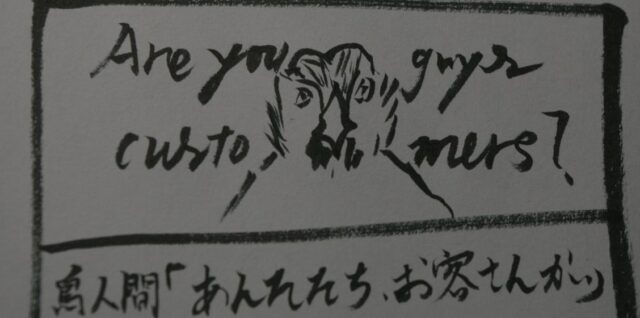 Are you guys
customers?
鳥人間「あんたたち、お客さんかい」